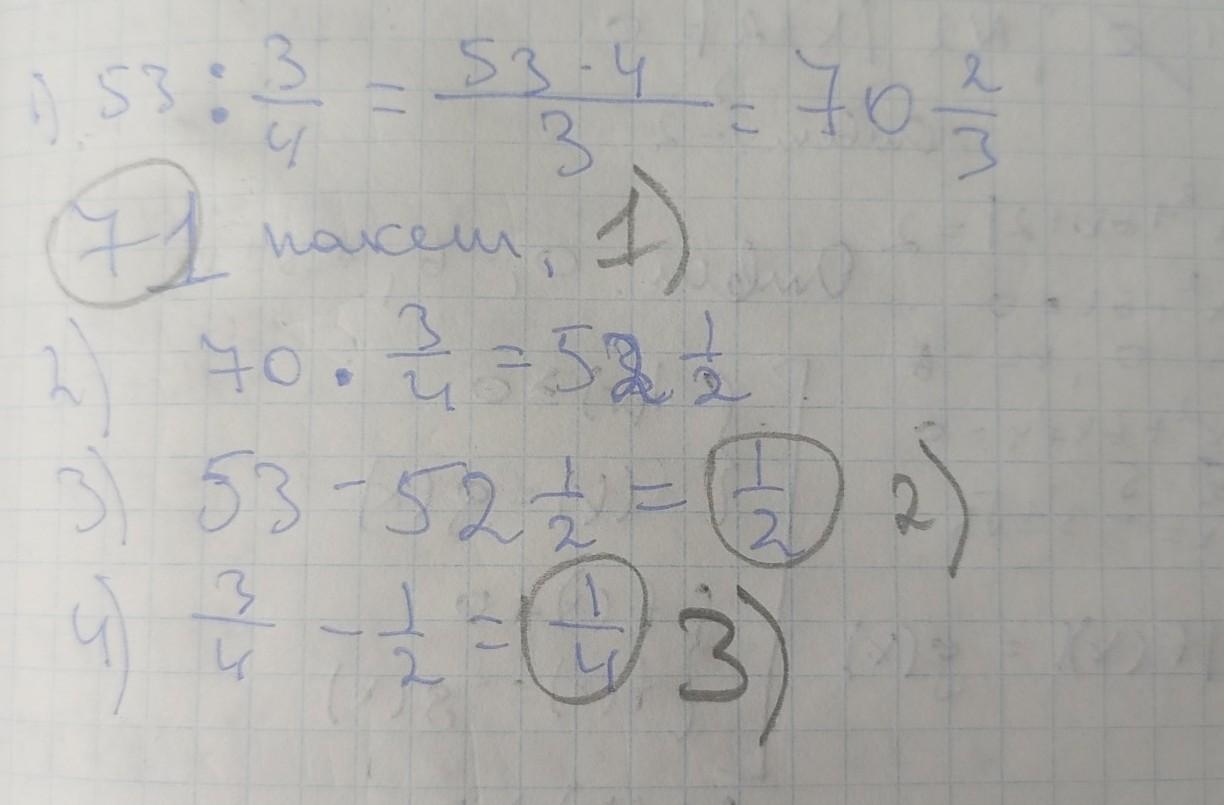 1) 53 : 3/4 = 53 · 4/3 = 70 2/3
71 пакет. 1)
2) 70 · 3/4 = 52 1/2
3) 53 - 52 1/2 = 1/2 2)
4) 3/4 - 1/2 = 1/4 3)